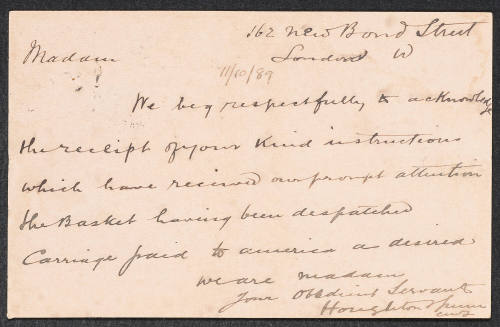 162 New Bond Street
London W
Madam
11/10/89
We beg respectfully to acknowledge
the receipt of your kind instructions
which have received our prompt attention
the Basket having been despatched
Carriage paid to america as desired
we are madam
Your Obedient Servants
Houghton &